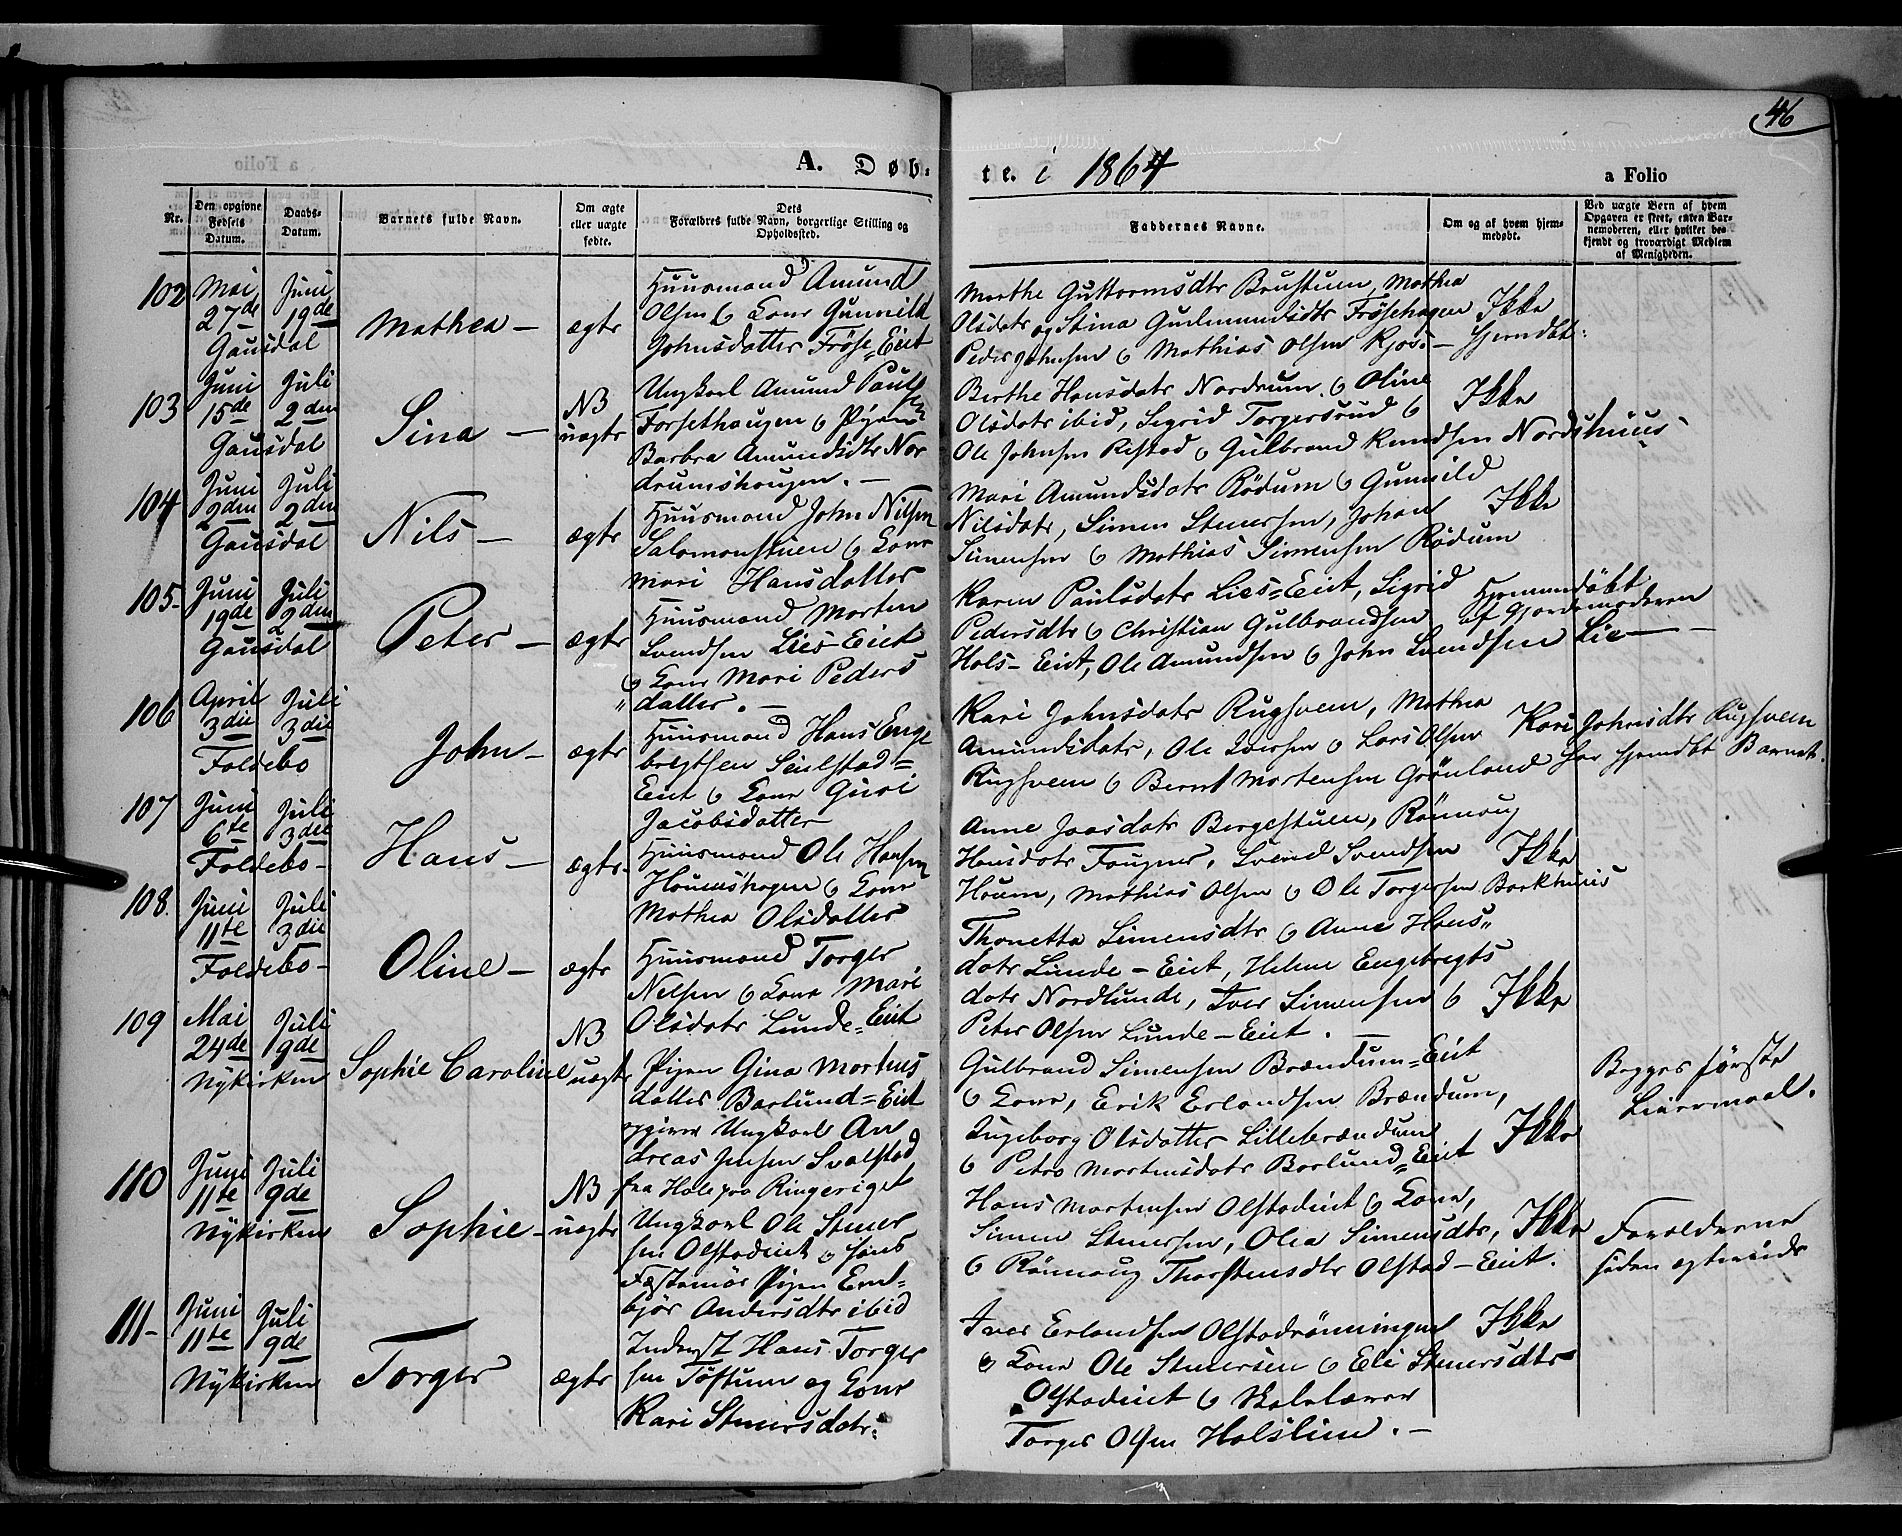 46
A. Døb-
te. i 1864
a Folio
Nr.
Den opgivne
Fødsels
Datum.
Daabs-
Datum.
Barnets fulde Navn.
Om ægte
eller uægte
fødte.
Dets
Forældres fulde Navn, borgerlige Stilling og
Opholdssted.
Faddernes Navne.
Om og af hvem hjem-
medøbt.
Ved uægte Børn af hvem
Opgaven er skeet, enten Bar-
nemoderen, eller hvilket be-
kjendt og troværdigt Medlem
af Menigheden.
102
Mai
27de
Juni
19de
Gausdal
Mathea –
ægte
Huusmand Amund
Olsen & Kone Gunnild
Johnsdatter Frøse=Eiet
Marthe Guttormsdtr Brustuen, Mathea
Olsdatr og Stina Gudmundsdtr Frösehagen
Peder Johnsen & Mathias Olsen Kjos. –
Ikke
hjemdbt:
103
Juni
15de
Juli
2den
Gausdal
Sina –
NB
uægte
Ungkarl Amund Paulsen
Forsethaugen & Pigen
Barbra Amundsdtr Nor
drumshaugen. –
Berthe Hansdatr Nordrum & Oline
Olsdatr ibid, Sigrid Torgersrud &
Ole Johnsen Ristad & Gulbrand Knudsen Nordshuus
Ikke
104
Juni
2den
Juli
2den
Gausdal
Nils –
ægte
Huusmand John Nilsen
Salomonstuen & Kone
Mari Hansdatter
Mari Amundsdatr Rödum & Gunnild
Nilsdatr, Simen Steuersen, Johan
Simensen & Mathias Simensen Rödum
Ikke
105-
Juni
19de
Juli
2den
Gausdal
Peter –
ægte
Huusmand Morten
Svendsen Lies-Eiet
& Kone Mari Peders
datter. –
Karen Paulsdatr Lies=Eiet, Sigrid
Pedersdtr & Christian Gulbrandsen
Hols-Eiet, Ole Amundsen & John Svendsen Lie
Hjemmedöbt
af Gjordemoderen
106
April
3die
Juli
3die
Foldebo
John –
ægte
Huusmand Hans Enge
bregtsen Seielstad=
Eiet & Kone Guri
Jacobsdatter
Kari Johnsdatr Rugsveen, Mathea
Amundsdatr, Ole Iversen & Lars Olsen
Rugsveen & Bernt Mortensen Grönland
Kari Johnsdtr Rugsveen
har hjemdbt Barnet.
107
Juni
6te
Juli
3die
Foldebo –
Hans –
ægte.
Huusmand Ole Hansen
Houmshagen & Kone
Mathea Olsdatter
Anne Joasdatr Bergestuen, Rönnoug
Hansdatr Fougner, Svend Svendsen
Houm, Mathias Olsen & Ole Torgersen Barkhuus
Ikke
108.
Juni
11te
Juli
3die
Foldebo –
Oline –
ægte
Huusmand Torger
Nilsen & Kone Mari
Olsdatr Lunde=Eiet
Thonetta Simensdtr & Anne Hans=
datr Lunde-Eiet, Helene Engebregts
datr Nordlunde, Iver Simensen &
Peter Olsen Lunde-Eiet. –
Ikke
109
Mai
24de
Juli
9de
Nykirken
Sophie Caroline
NB
uægte
Pigen Gina Mortens
datter Baslund=Eiet
opgiver Ungkarl An
dreas Jensen Svalstad
fra Hole paa Ringeriget
Gulbrand Simensen Brændum=Eiet
& Kone, Erik Erlandsen Brændum,
Ingeborg Olsdatter Lillebrændum
& Petra Mortensdatr Baslund=Eiet
Ikke
Begges första
Leiermaal.
110
Juni
11te
Juli
9de
Nykirken
Sophie –
NB
uægte
Ungkarl Ole Steuer
sen Olstadeiet & hans
Fæstemör Pigen Em-
björ Andersdtr ibid
Hans Mortensen Olstadeiet & Kone,
Simen Steuersen, Olea Simensdtr,
& Rönnoug Thorstensdtr Olstad-Eiet.
Ikke
Forældrene
siden egteviede
111-
Juni
11te
Juli
9de
Nykirken
Torger
ægte
Inderst Hans Torger
sen Toftum og Kone
Kari Steuersdatr:
Iver Erlandsen Olstadrönningen
& Kone Ole Steuersen & Eli Steuersdtr
Olstadeiet & Skolelærer
Torger Olsen Holslien. –
Ikke